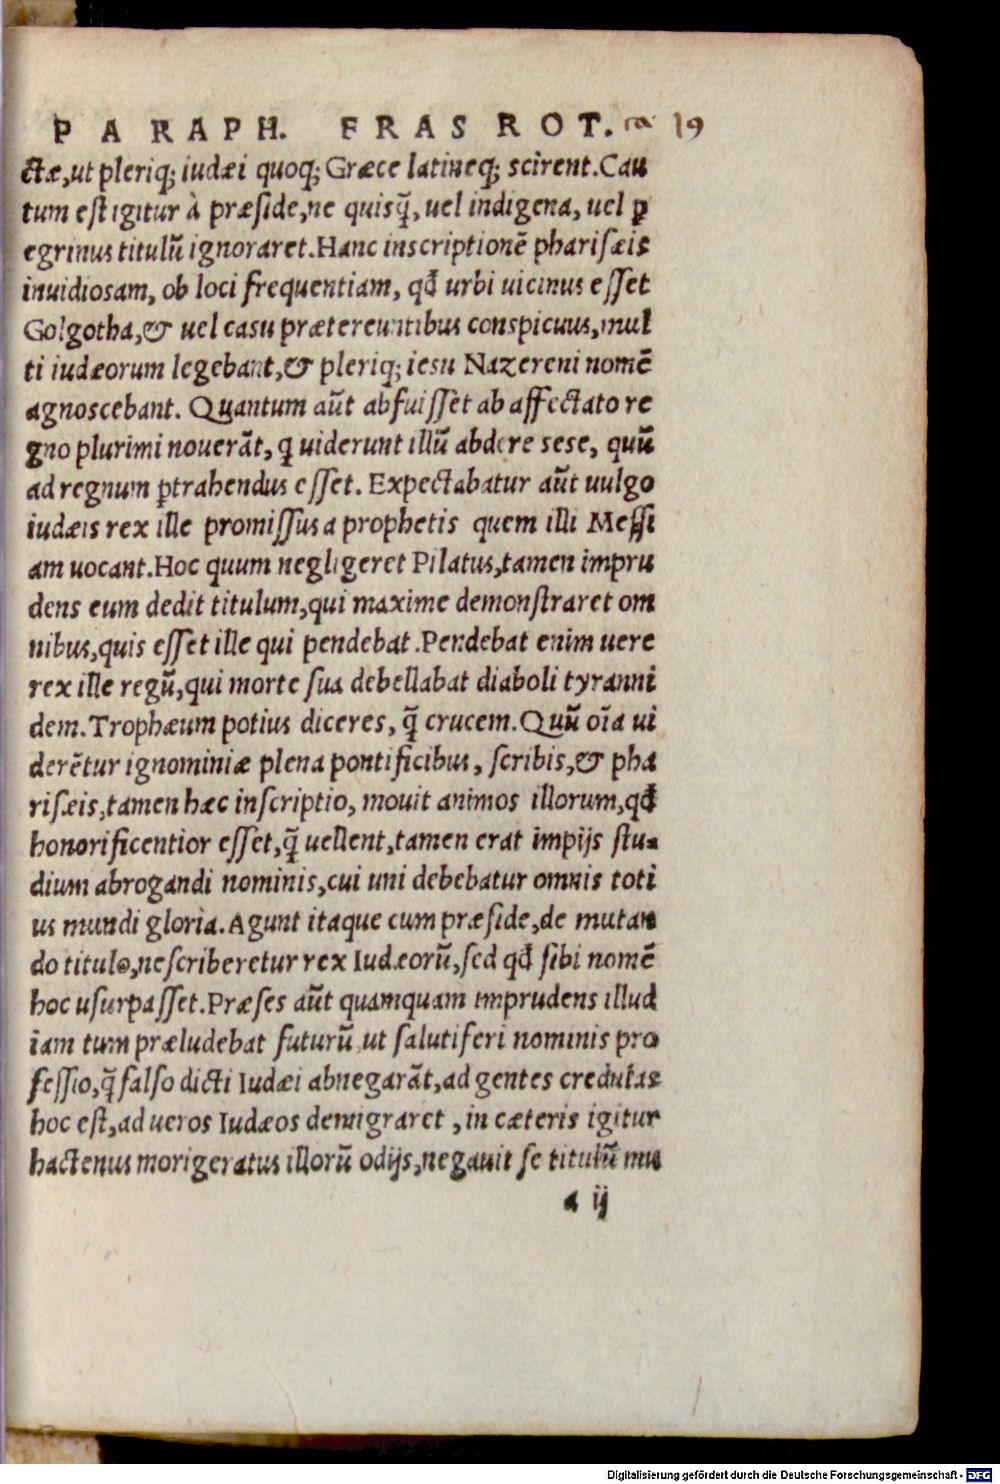 PARAPH. ERAS ROT. 19
ctæ,ut pleriq; iudæi quoq; Græce latineq; scirent.Cau
tum est igitur à præside,ne quisq̃, uel indigena, uel ꝑ
egrinus titulũ ignoraret.Hanc inscriptionẽ pharisæis
inuidiosam, ob loci frequentiam, qđ urbi uicinus esset
Golgotha,& uel casu prætereuntibus conspicuus,mul
ti iudæorum legebant,& pleriq; iesu Nazereni nomẽ
agnoscebant. Quantum aũt abfuisset ab affectato re
gno plurimi nouerãt, q uiderunt illũ abdere sese, quũ
ad regnum ꝑtrahendus esset. Expectabatur aũt uulgo
iudæis rex ille promissus a prophetis quem illi Messi
am uocant.Hoc quum negligeret Pilatus,tamen impru
dens eum dedit titulum,qui maxime demonstraret om
nibus,quis esset ille qui pendebat.Pendebat enim uere
rex ille regũ,qui morte sua debellabat diaboli tyranni
dem.Trophæum potius diceres, q̃ crucem.Quũ oĩa ui
derẽtur ignominiæ plena pontificibus, scribis,& pha
risæis,tamen hæc inscriptio, mouit animos illorum,qđ
honorificentior esset,q̃ uellent,tamen erat impijs stu-
dium abrogandi nominis,cui uni debebatur omnis toti
us mundi gloria.Agunt itaque cum præside,de mutan
do titulo,ne scriberetur rex Iudæorũ,sed qđ sibi nomẽ
hoc usurpasset.Præses aũt quamquam imprudens illud
iam tum præludebat futurũ ut salutiferi nominis pro
fessio,q̃ falso dicti Iudæi abnegarãt,ad gentes credulas
hoc est,ad ueros Iudæos demigraret,in cæteris igitur
hactenus morigeratus illorũ odijs,negauit se titulũ mu
a ij
Digitalisierung gefördert durch die Deutsche Forschungsgemeinschaft - DFG